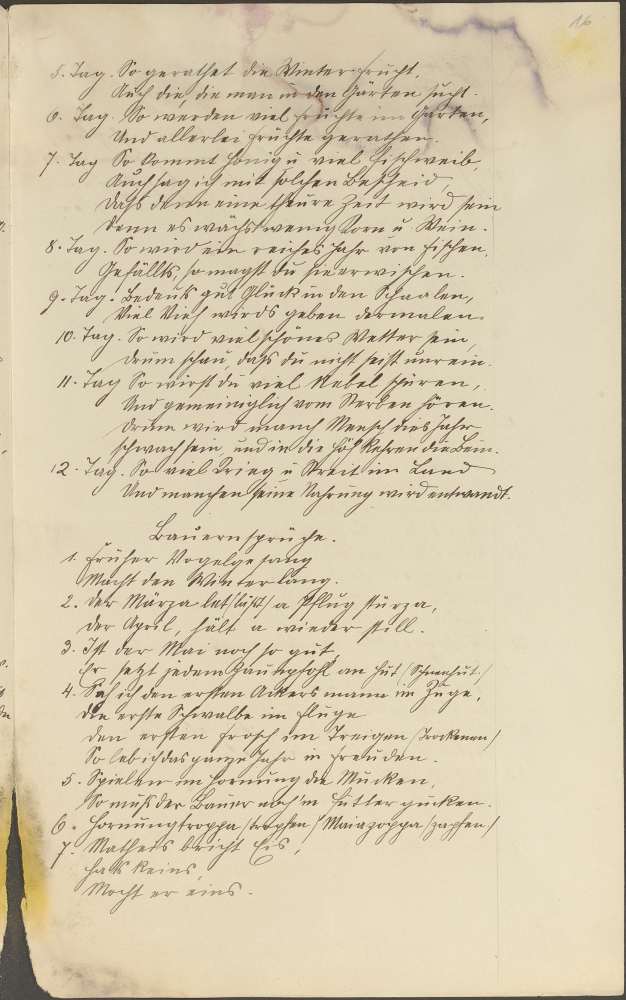 16
5. Tag. So gerathet die Winterfrucht,
Auch die, die man in den Gärten sucht.
6. Tag. So werden viel Früchte im Garten,
Und allerlei Früchte gerathen.
7. Tag So kommt Honig u viel Fischweib,
Auch sag ich mit solchen Bescheid,
Dass denn eine theure Zeit wird sein
Denn es wächst wenig Korn u. Wein.
8. Tag. So wird ein reiches Jahr von Fischen,
Gefällts, so magst du sie erwischen.
9. Tag. Bedeuts gut Glück in den Schaalen,
Viel Vieh wirds geben dermalen.
10. Tag. So wird viel schönes Wetter sein,
Drum schau, dass du nicht seist unrein.
11. Tag So wirst du viel Nebel spüren,
Und gemeiniglich vom Sterben hören.
Drum wird manch Mensch dies Jahr
schwach sein, und in die Höh kehren die Bein.
12. Tag. So viel Krieg u Streit im Land
Und manchen seine Nahrung wird entwandt.
Bauernsprüche.
1. Früher Vogelgesang
Macht den Winter lang.
2. Der Märza let /läßt/ a Pflug sturza,
Der April, hält n wieder still.
3. Ist der Mai noch so gut,
Er setzt jedem Zaunpfohl an Hut /Schneehut./
4. Seh ich den ersten Ackersmann im Zuge,
Die erste Schwalbe im Fluge
Den ersten Frosch im Treigen /Trockenen/
So leb ich das ganze Jahr in Freuden.
5. Spielen im Hornung die Mucken,
So muß der Bauer noch 'm Futter gucken.
6. Hornungtroppa /tropfen/ Maiazoppa /zapfen/
7. Matheis bricht Eis,
Hats keins,
Mocht er eins.